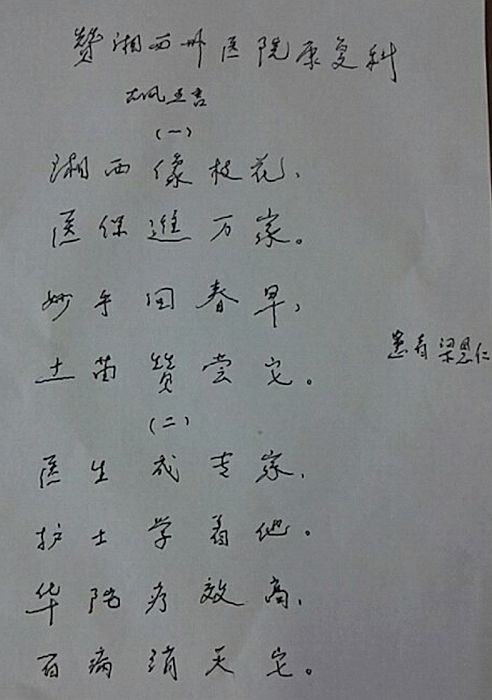 赞湘西州医院康复科
古风五言
(一)
湘西像枝花,
医保进万家。
妙手回春早,
土苗赞尝它。
患者梁恩仁
(二)
医生成专家,
护士学着他。
华陀疗效高,
百病消灭它。